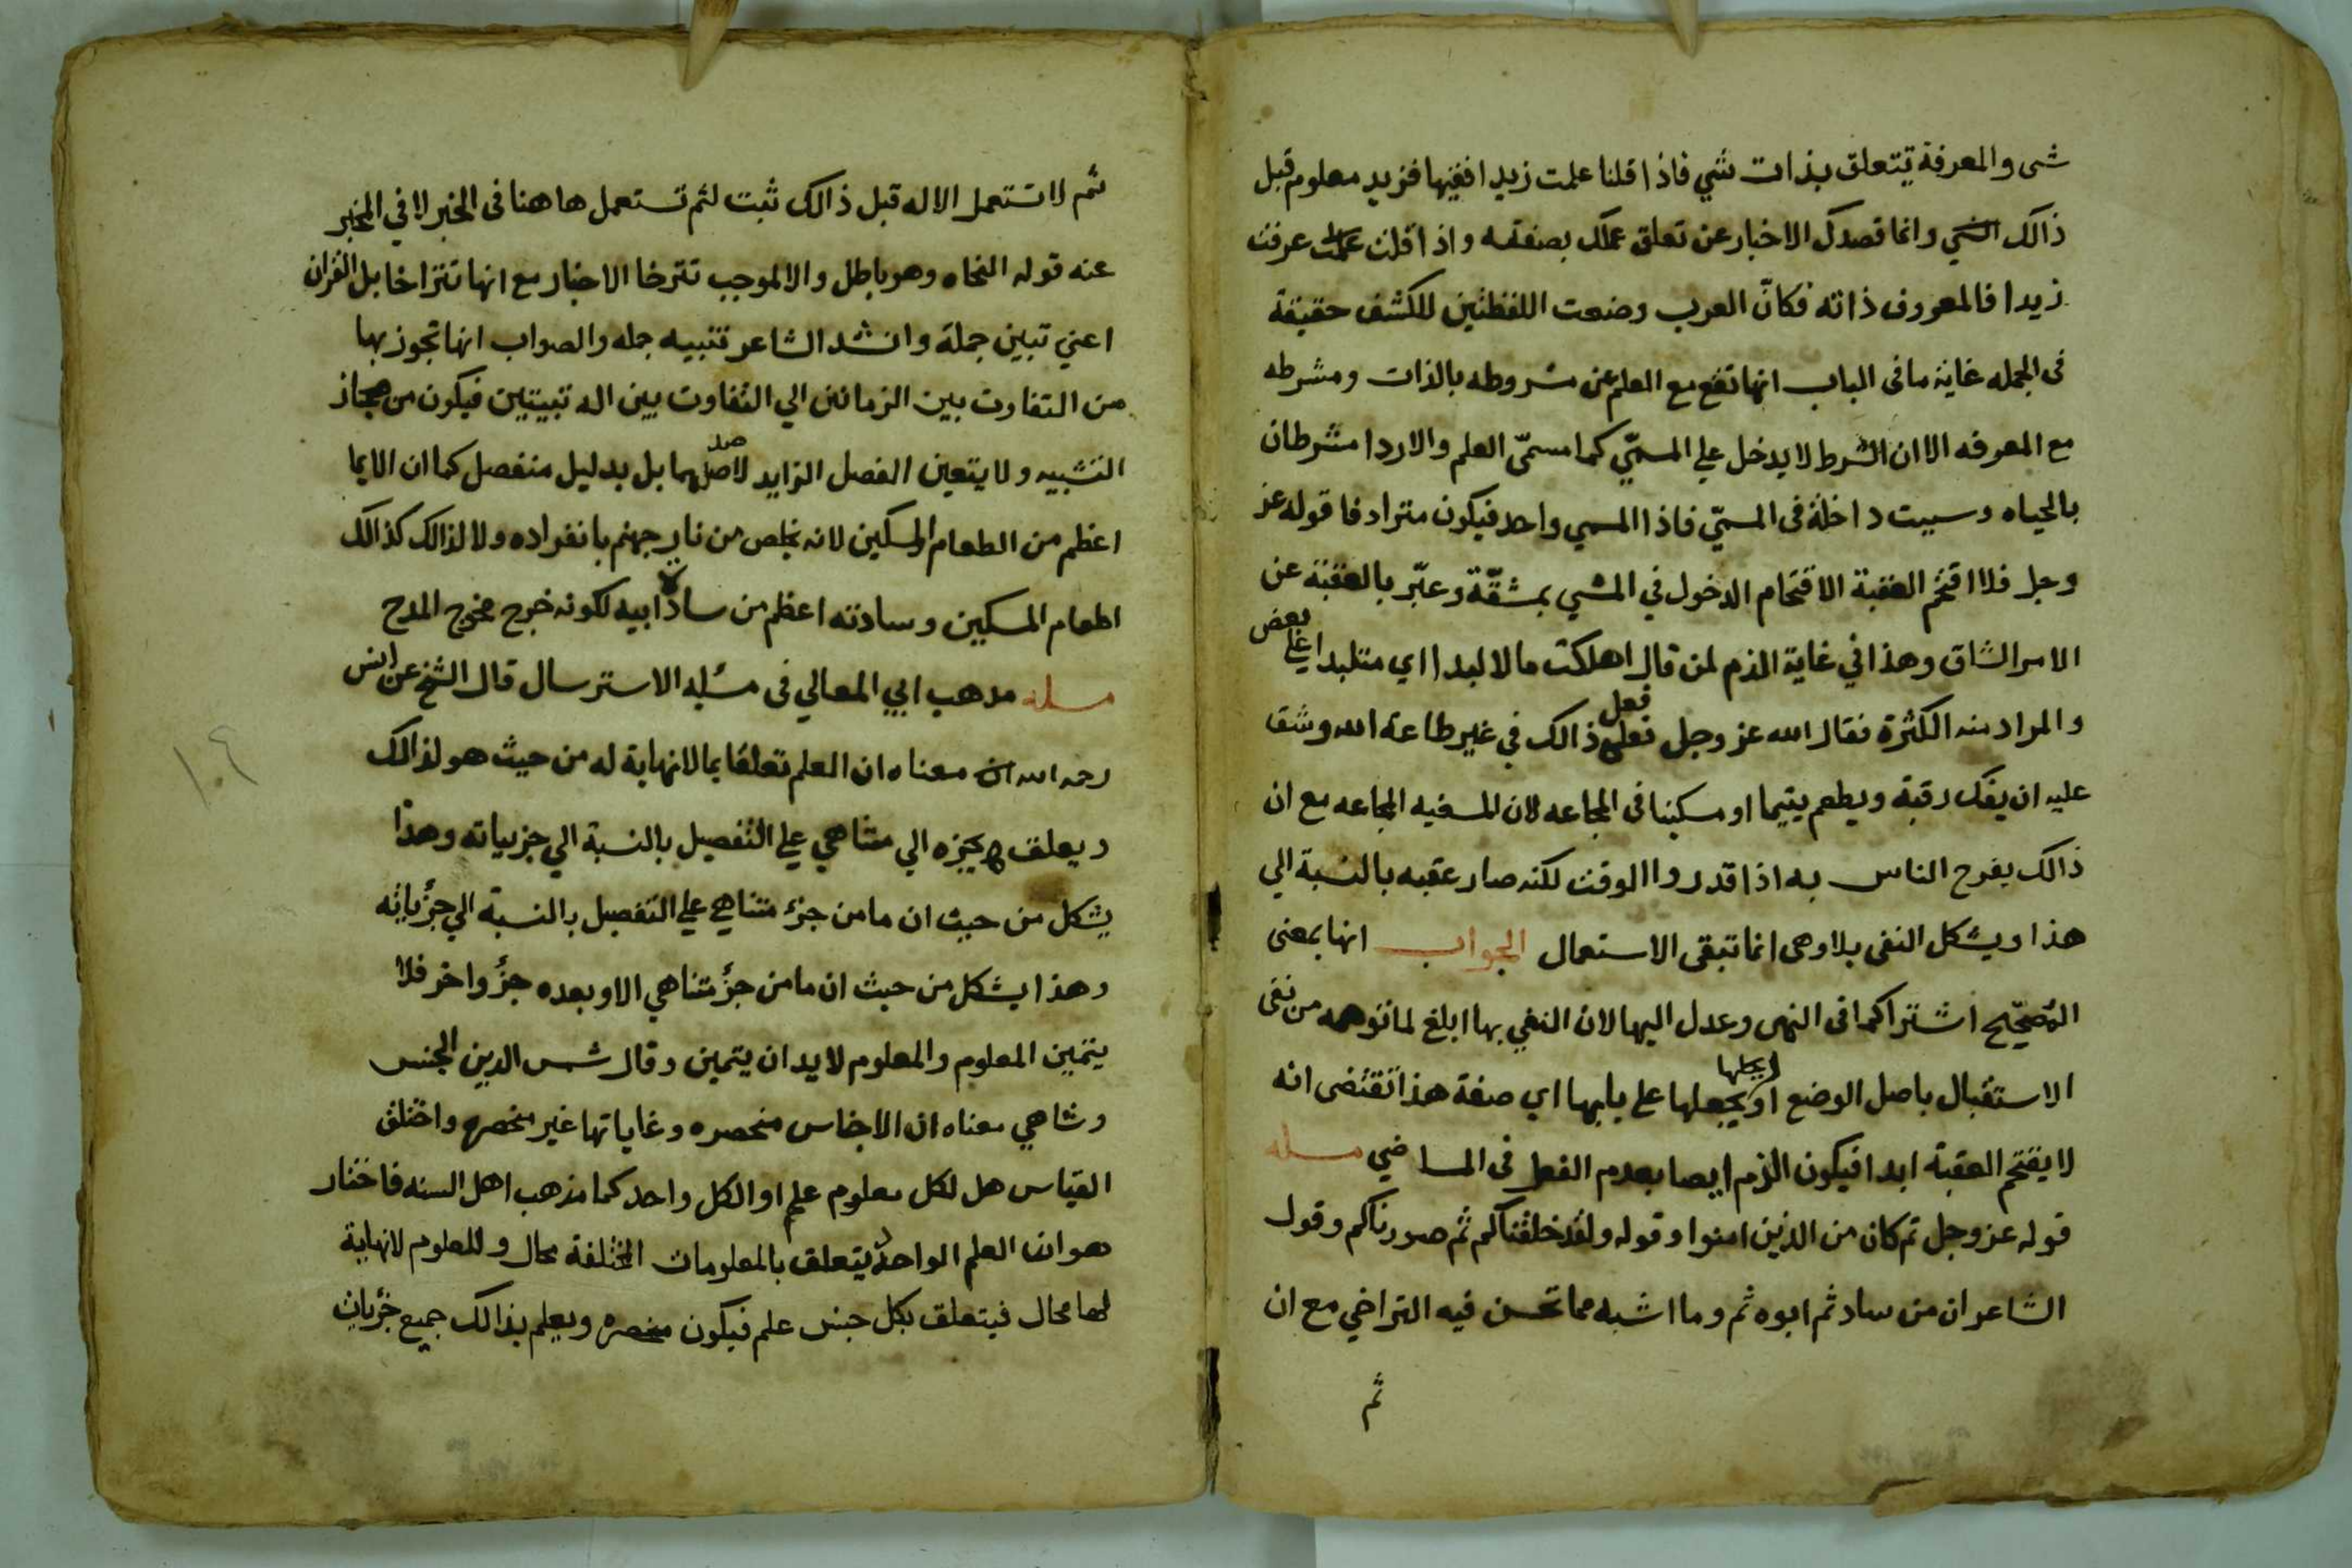 شى والمعرفة تتعلق بذات شي فاذا قلنا علمت زيدا فقيها فزيد معلوم قبل
ذالك الشي وانما قصدك الاخبار عن تعلق علمك بصفته واذا قلت عرفت
زيدا فالمعروف ذاته فكانّ العرب وضعت اللفظتين للكشف حقيقة
فى الجمله غاية ما فى الباب انها تقع مع العلم عن مشروطه بالذات ومشرطه
مع المعرفه الا ان الشرط لا يدخل علي المسمّي كما مسمّى العلم والاردا مشرطان
بالحياه وسيت داخلة فى المسمّي فاذا المسمي واحد فيكون مترادفا قوله عز
وجل فلا اقتحم العقبة الاقتحام الدخول في المشي بمشقّة وعبّر بالعقبة عن
الامر الشاق وهذا في غاية الذم لمن قال اهلكت مالا لبدا اي متلبدا علي بعض
والمراد منه الكثرة فقال الله عز وجل فعل ذالك في غير طاعة الله وشق
عليه ان يفك رقبة ويطعم يتيما او مسكينا فى المجاعه لان المسغبه المجاعه مع ان
ذالك يفرح الناس به اذا قدروا الوقت لكنه صار عقبه بالنسبة الي
هذا ويشكل النفى بلا وهى انما تبقى الاستعمال الجواب انها بمعنى
اشتراكهما فى النهى وعدل اليها لان النفي بها ابلغ لما توهمه من نفى
الاستقبال باصل الوضع او يجعلها على بابها اي صفة هذا تقتضى انه
لا يقتحم العقبة ابدا فيكون الذم ايضا بعدم الفعل فى الماضي مسله
قوله عز وجل ثم كان من الذين امنوا وقوله ولقد خلقناكم ثم صورناكم وقول
الشاعر ان من ساد ثم ابوه ثم وما اشبه مما تحسن فيه التراخي مع ان
ثم
ثم لا تستعمل الاله قبل ذالك ثبت لثم تستعمل هاهنا فى الخبر لا في المخبر
عنه قوله النحاه وهو باطل والا لموجب تترخا الاخبار مع انها تتراخا بل القران
اعني تبين جملة وانشد الشاعر تنبيه جمله والصواب انها تجوز بها
من التفاوت بين الزمانين الي التفاوت بين اله تبيتين فيكون من مجاز
التشبيه ولا يتعين الفصل الزايد لاصلهما بل بدليل منفصل كما ان الايما
اعظم من الطعام المسكين لانه يخلص من نار جهنم بانفراده ولا لذالك كذالك
اطعام المسكين وسادته اعظم من سادة ابيه لكونه خرج مخرج المدح
مسله مذهب ابي المعالي فى مسئله الاسترسال قال الشيخ عن انس
رحمه الله ان معناه ان العلم تعلقا بما لا نهاية له من حيث هو لذالك
ويعلق بجزه الي متناهي علي التفصيل بالنسبة الي جزيياته وهذا
يشكل من حيث ان ما من جزء متناهي علي التفصيل بالنسبة الي جزياته
وهذا يشكل من حيث ان ما من جزء متناهي الا وبعده جزؤ اخر فلا
يتميز المعلوم والمعلوم لا بد ان يتميز وقال شمس الدين الجنس
وشاهي معناه ان الاجناس منحصره وغاياتها غير منحصره واختلف
القياس هل لكل معلوم علم او الكل واحد كما مذهب اهل السنه فاختار
هو ان العلم الواحد يتعلق بالمعلومات المختلفة محال وللمعلوم لا نهاية
لها محال فيتعلق بكل جنس علم فيكون منحصره ويعلم بذالك جميع جزيات
١٠٩